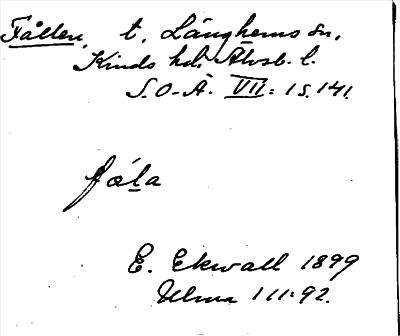 Fållen, t. Långhems sn,
Kinds hd. Älvsb. l.
S.O-Ä. VII: 1 s. 141.
fǻla
E. Ekwall 1899
Ulma 111:92.